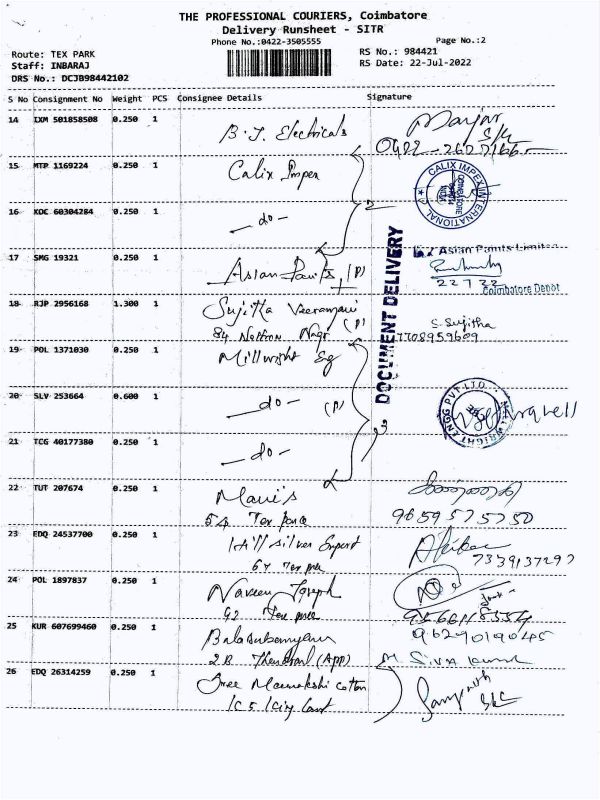 THE PROFESSIONAL COURIERS, Coimbatore
Delivery Runsheet - SITR
Phone No.:0422-3505555
Page No.:2
Route: TEX PARK
RS No.: 984421
Staff: INBARAJ
RS Date: 22-Jul-2022
DRS No.: DCJB98442102
S No Consignment No Weight PCS Consignee Details Signature
14 IXM 501858508 0.250 1 B.J. Electricals
15 MTP 1169224 0.250 1 Calix Impex
CALIX IMPEX INTERNATIONAL
COIMBATORE
16 KDC 60304284 0.250 1 - do -
2
17 SMG 19321 0.250 1 Asian Paints (P)
Asian Paints Limited
22 7 22
Coimbatore Depot
DOCUMENT DELIVERY
18 RJP 2956168 1.300 1 Sujitha Veeramani (P)
84 Nagr
S. Sujitha
7708959609
19 POL 1371030 0.250 1 Millwright Eg
20 SLV 253664 0.600 1 - do - (P)
MILLWRIGHT ENGG PVT LTD
21 TCG 40177380 0.250 1 - do -
3
22 TUT 207674 0.250 1
54 Tex park
9659575750
23 EDQ 24537700 0.250 1 Hill Silver Export
67 Tex park
7339137297
24 POL 1897837 0.250 1 Naveen Joseph
92 Tex park
9566118554
25 KUR 607699460 0.250 1 Balasubramaniam
2B (App)
9629019045
M. Siva Kumar
26 EDQ 26314259 0.250 1 Sree Meenakshi Cotton